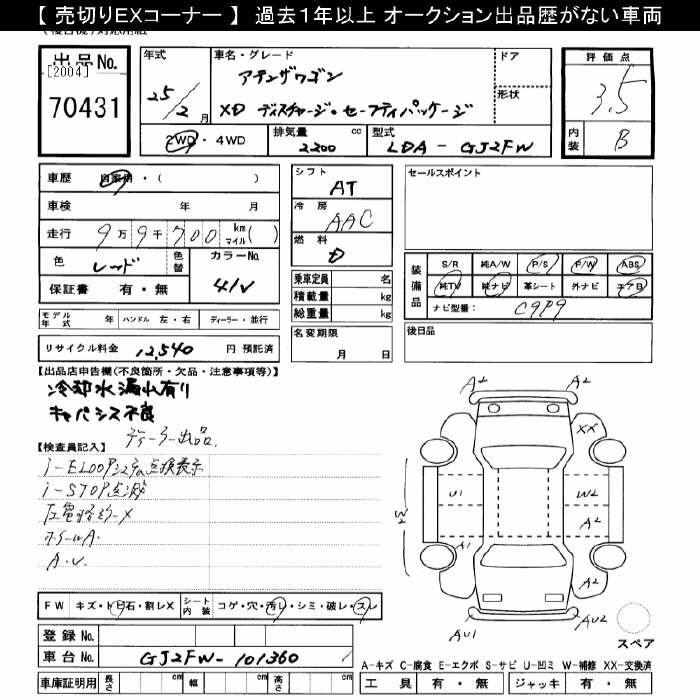 【 売切りEXコーナー 】 過去1年以上 オークション出品歴がない車両
出品No.
[2004]
70431
年式
25/2月
車名・グレード
アテンザワゴン
XD ディスチャージ・セーフティパッケージ
ドア
形状
2WD・4WD
排気量 cc
2200
型式
LDA-GJ2FW
評価点
3.5
内装
B
車歴 自家用・( )
車検 年 月
走行 9万9千700 km マイル( )
色 レッド 色替 カラーNo. 41V
保証書 有・無
モデル年式 年 ハンドル 左・右 ディーラー・並行
リサイクル料金 12,540 円 預託済
シフト
AT
冷房
AAC
燃料
D
乗車定員 名
積載量 kg
総重量 kg
名変期限
月 日
セールスポイント
装備品
S/R 純A/W P/S P/W ABS
純TV 純ナビ 革シート 外ナビ エアB
ナビ型番: C9P9
後日品
【出品店申告欄(不良箇所・欠品・注意事項等)】
冷却水漏れ有り
キャパシス不良
ディーラー出品
【検査員記入】
i-ELOOPシステム点検表示
i-STOP点滅
左電格ミラーX
ホイールA.
A.U.
FW キズ・トビ石・割レX シート内装 コゲ・穴・汚レ・シミ・破レ・スレ
登録No.
車台No. GJ2FW-101360
車庫証明用 長さ cm 幅 cm 高さ cm
A2 A2
XX
U1 W2
W2
A2
A1
A2
AU1 AU2
スペア
A-キズ C-腐食 E-エクボ S-サビ U-凹ミ W-補修 XX-交換済
工具 有・無 ジャッキ 有・無